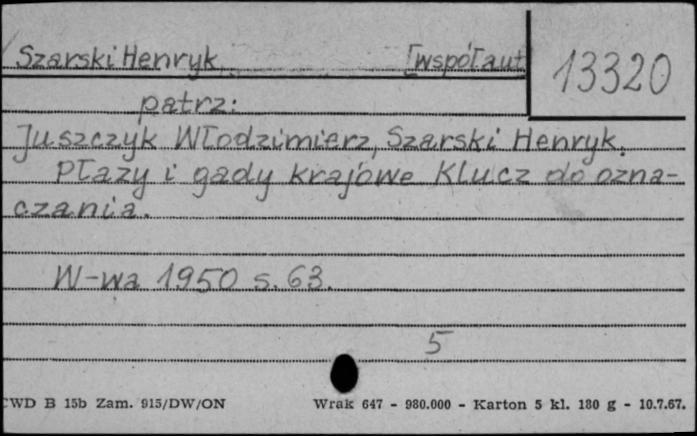 Szarski Henryk [współaut
13320
patrz:
Juszczyk Włodzimierz, Szarski Henryk.
Płazy i gady krajowe Klucz do ozna-
czania.
W-wa 1950 s. 63.
5
CWD B 15b Zam. 915/DW/ON Wrak 647 - 980.000 - Karton 5 kl. 180 g - 10.7.67.